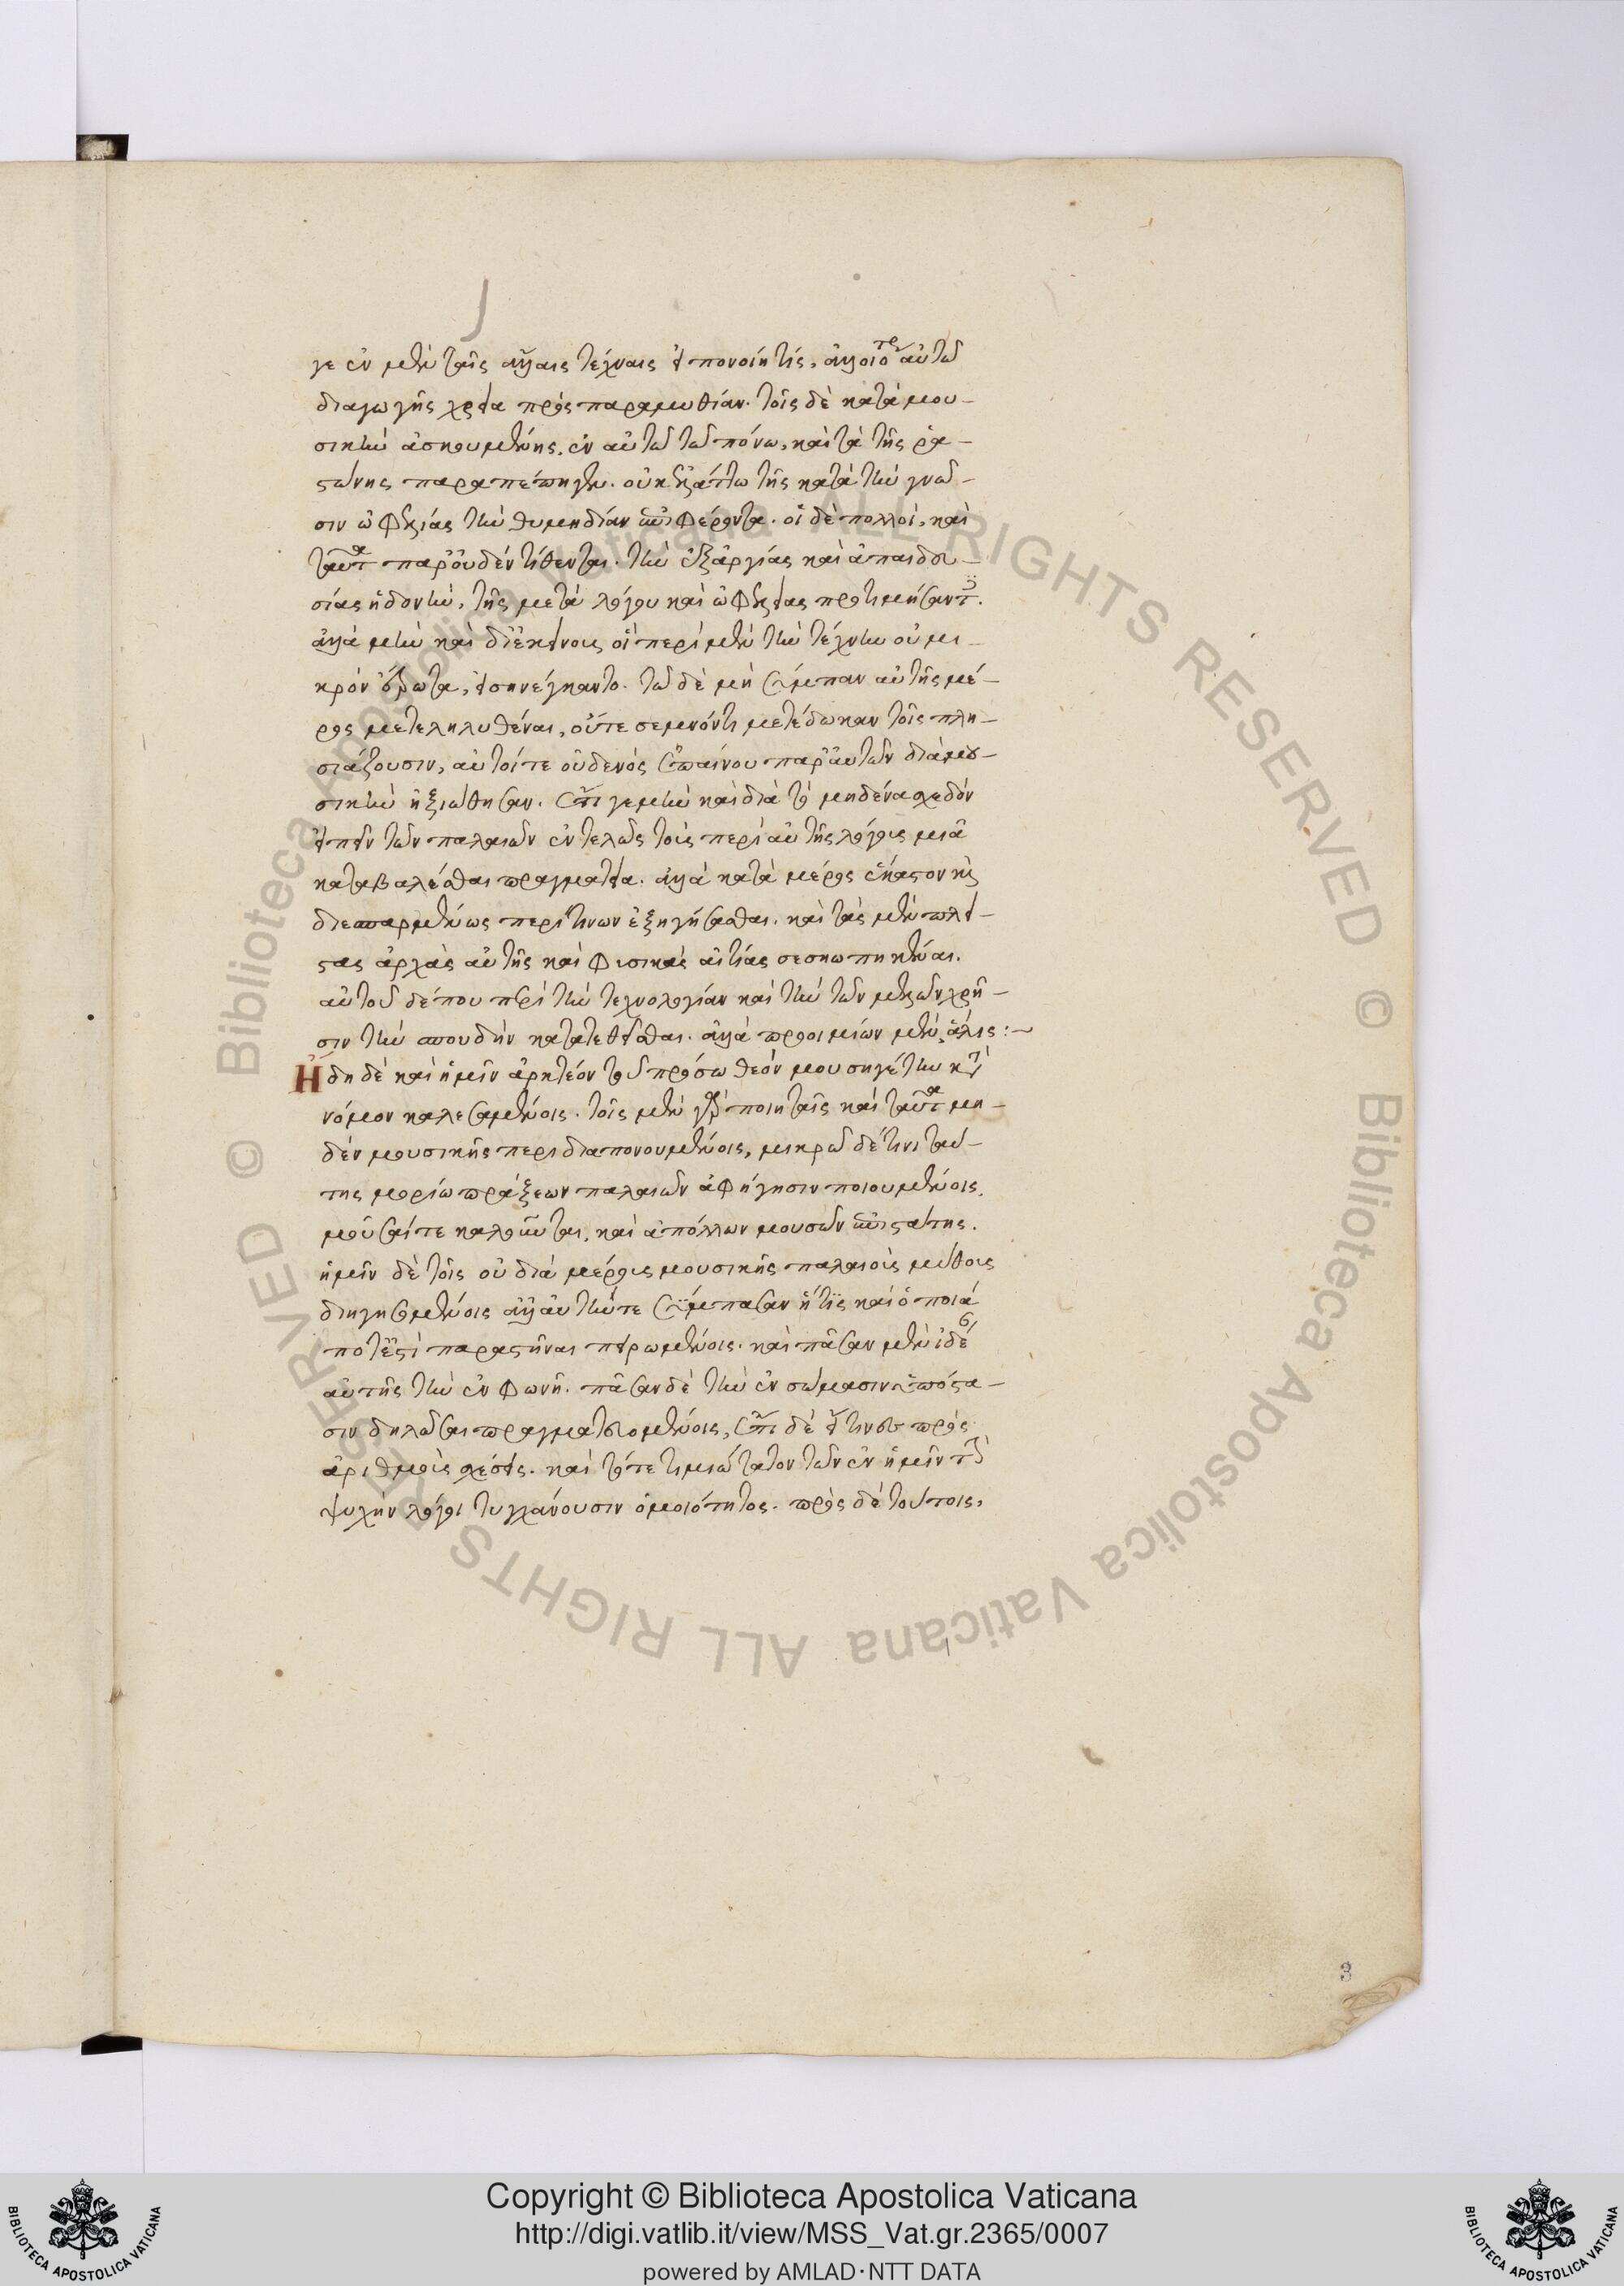 γε ἐν μὲν ταῖς ἄλλαις τέχναις εἰ πονοίη τίς, ἀλλοιοτέρας αὐτῶ
διαγωγῆς χρεία πρὸς παραμυθίαν. τοῖς δὲ κατὰ μου-
σικὴν ἀσκουμένης. ἐν αὐτῶ τῶ πόνω, καὶ τὰ τῆς ῥα-
στώνης παραπέπηγεν. οὐκ ἐλάττω τῆς κατὰ τὴν γνῶ-
σιν ὠφελίας τὴν θυμηδίαν ἐπιφέροντα. οἱ δὲ πολλοὶ, καὶ
ταῦτα παρ' οὐδὲν τίθενται. τὴν ἐξ ἀργίας καὶ ἀπαιδευ-
σίας ἡδονὴν, τῆς μετὰ λόγου καὶ ὠφελείας προτιμήσαντες.
ἀλλὰ μὴν καὶ δι' ἐκείνους οἳ περὶ μὲν τὴν τέχνην οὐ μι-
κρὸν ἔρωτα, εἰσηνέγκαντο. τῶ δὲ μὴ σύμπαν αὐτῆς μέ-
ρος μετεληλυθέναι, οὔτε σεμνόν τι μετέδωκαν τοῖς πλη-
σιάζουσιν, αὐτοί τε οὐδενὸς ἐπαίνου παρ' αὐτῶν διὰ μου-
σικὴν ἠξιώθησαν. ἔτι γε μὴν καὶ διὰ τὸ μηδένα σχεδὸν
εἰπεῖν τῶν παλαιῶν ἐντελῶς τοὺς περὶ αὐτῆς λόγοις μιᾶ
καταβαλέσθαι πραγματεία. ἀλλὰ κατὰ μέρος ἕκαστον καὶ
διεσπαρμένως περί τινων ἐξηγήσασθαι. καὶ τὰς μὲν πλεί-
στας ἀρχὰς αὐτῆς καὶ φυσικὰς αἰτίας σεσιωπηκέναι.
αὐτοῦ δέ που περὶ τὴν τεχνολογίαν καὶ τὴν τῶν μελῶν χρῆ-
σιν τὴν σπουδὴν κατατεθεῖσθαι. ἀλλὰ προοιμίων μὲν, ἅλις :~
Ἤδη δὲ καὶ ἡμῖν ἀρκτέον τοῦ πρόσω θεὸν μουσηγέτην κατὰ
νόμον καλεσαμένοις. τοῖς μὲν γὰρ ποιηταῖς καὶ ταῦτα μη-
δὲν μουσικῆς περὶ διαπονουμένοις, μικρῶ δέ τινι ταύ-
της μορίω πράξεων παλαιῶν ἀφήγησιν ποιουμένοις.
μοῦσαί τε καλοῦνται. καὶ ἀπόλλων μουσῶν ἐπιστάτης.
ἡμῖν δὲ τοῖς οὐ διὰ μέρους μουσικῆς παλαιοὺς μύθους
διηγησομένοις ἀλλ' αὐτήν τε σύμπασαν ἥτις καὶ ὁποιά
ποτέ ἐστι παραστῆναι πειρωμένοις. καὶ πᾶσαν μὲν ἰδέαν
αὐτῆς τὴν ἐν φωνῆ. πᾶσαν δὲ τὴν ἐν σώμασιν ὑπόστα-
σιν δηλῶσαι πραγματευομένοις, ἔτι δὲ εἴ τινες πρὸς
ἀριθμοὺς σχέσεις. καὶ τό τε τιμιώτατον τῶν ἐν ἡμῖν τὴν
ψυχὴν λόγοι τυγχάνουσιν ὁμοιότητος. πρὸς δὲ τούτοις,
3
Copyright © Biblioteca Apostolica Vaticana
http://digi.vatlib.it/view/MSS_Vat.gr.2365/0007
powered by AMLAD·NTT DATA